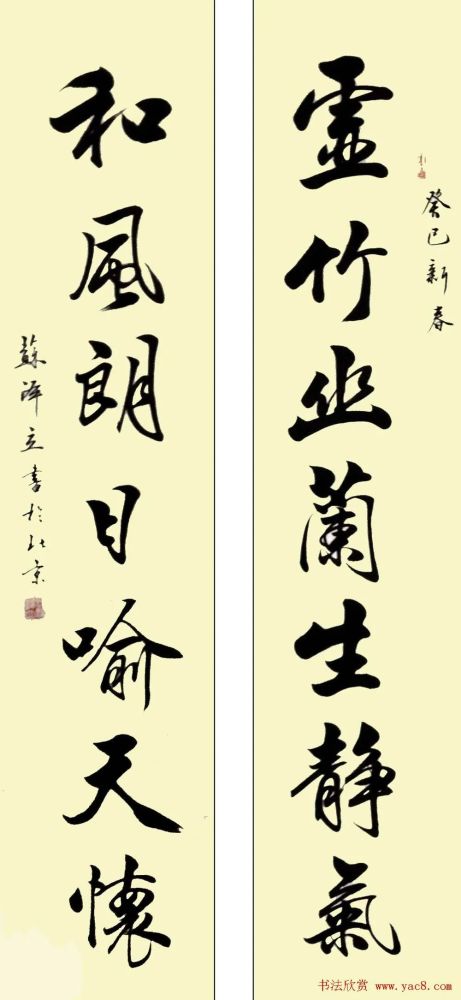 癸巳新春
靈竹幽蘭生靜氣
和風朗日喻天懷
蘇澤立書於北京
书法欣赏 www.yac8.com